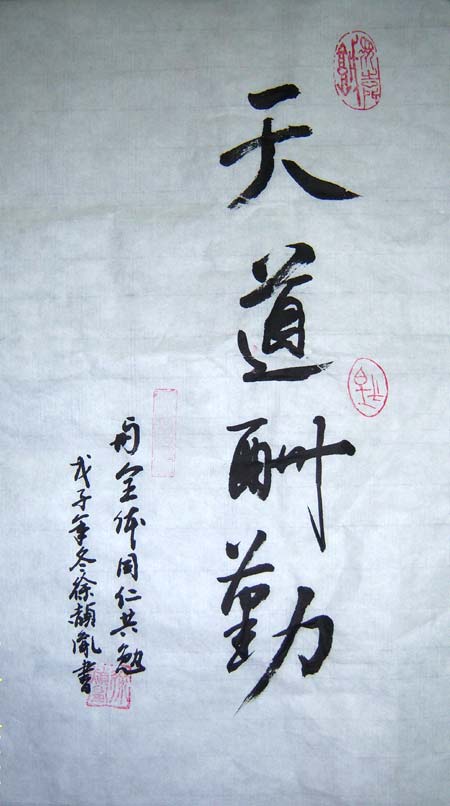 天道酬勤
与全体同仁共勉
戊子年冬徐颜胤书